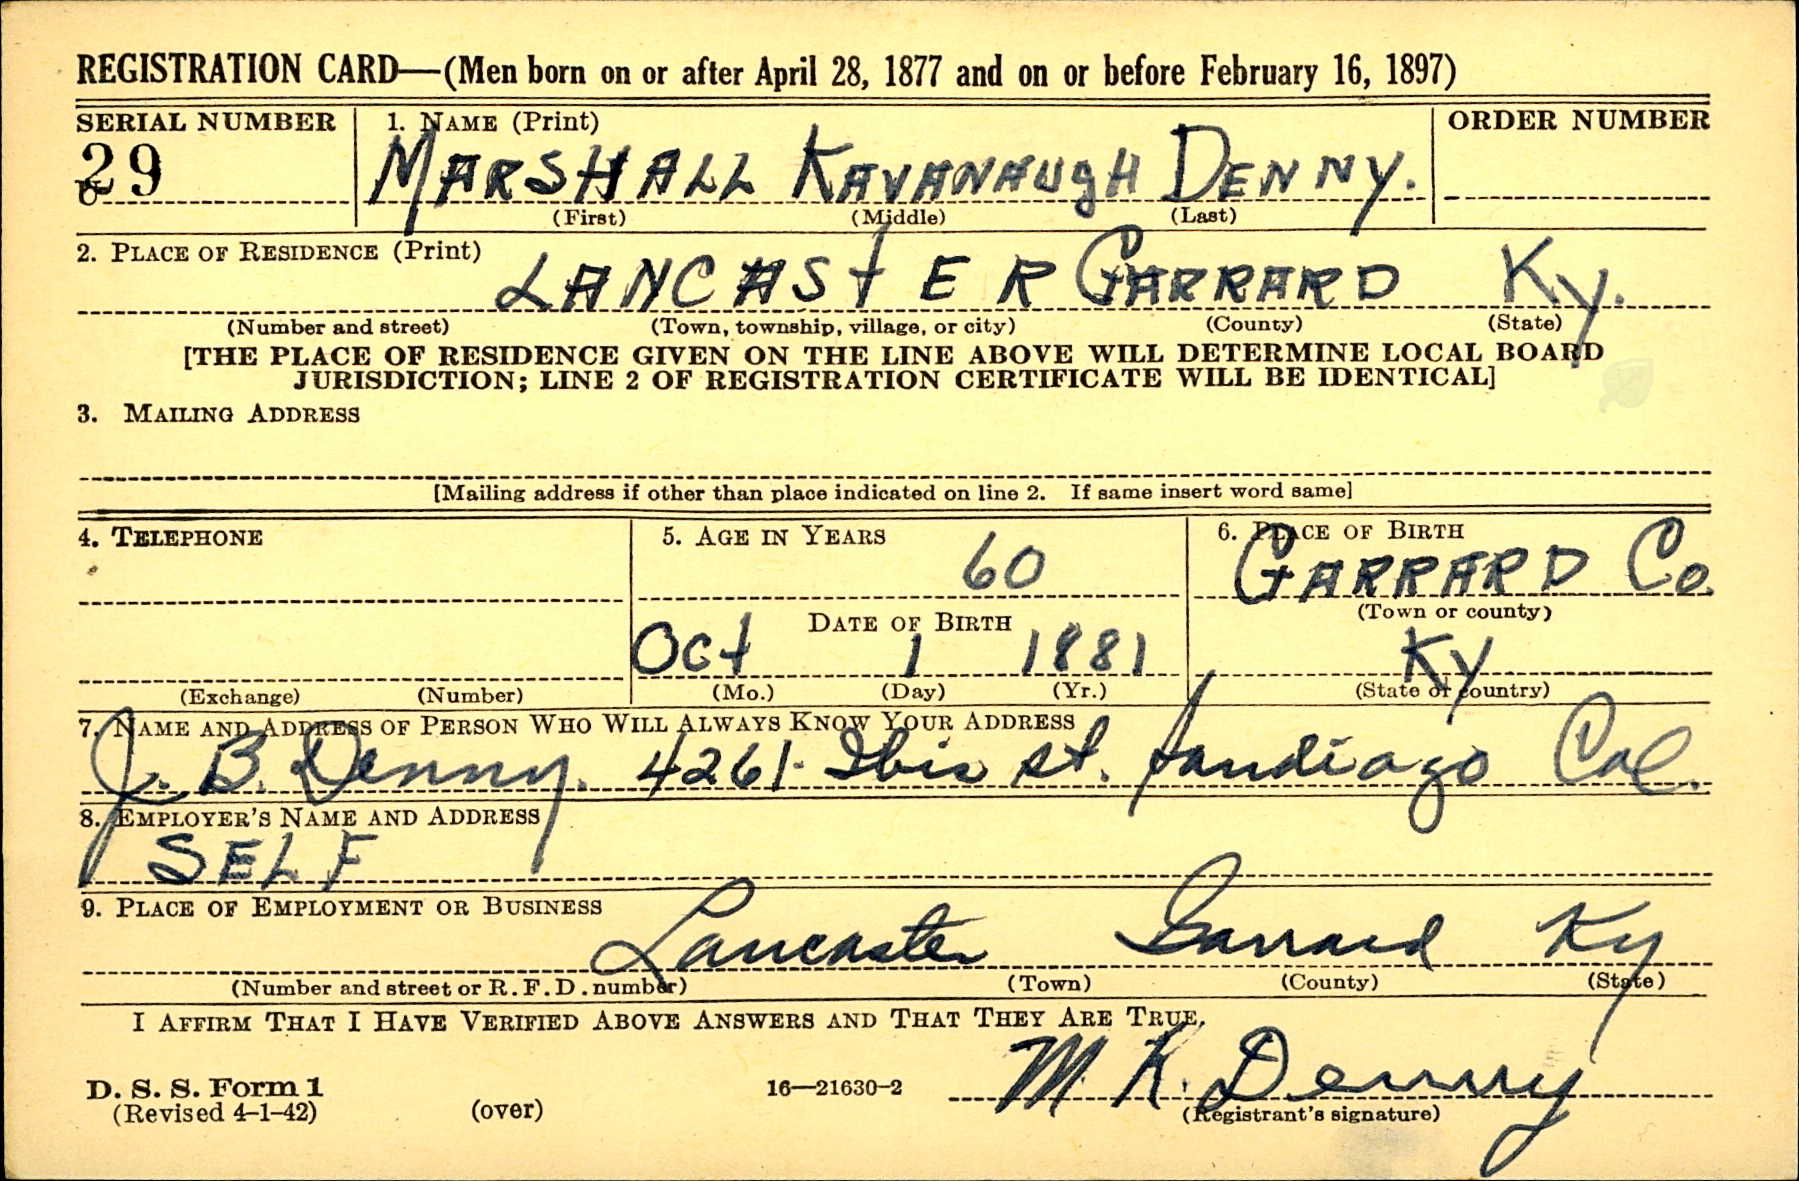 REGISTRATION CARD—(Men born on or after April 28, 1877 and on or before February 16, 1897)
SERIAL NUMBER 1. NAME (Print) ORDER NUMBER
29 MARSHALL KAVANAUgH DENNY.
(First) (Middle) (Last)
2. PLACE OF RESIDENCE (Print)
LANCAStER GARRARD Ky.
(Number and street) (Town, township, village, or city) (County) (State)
[THE PLACE OF RESIDENCE GIVEN ON THE LINE ABOVE WILL DETERMINE LOCAL BOARD
JURISDICTION; LINE 2 OF REGISTRATION CERTIFICATE WILL BE IDENTICAL]
3. MAILING ADDRESS
[Mailing address if other than place indicated on line 2. If same insert word same]
4. TELEPHONE 5. AGE IN YEARS 6. PLACE OF BIRTH
60 GARRARD Co.
(Town or county)
DATE OF BIRTH
Oct 1 1881 Ky
(Exchange) (Number) (Mo.) (Day) (Yr.) (State or country)
7. NAME AND ADDRESS OF PERSON WHO WILL ALWAYS KNOW YOUR ADDRESS
J. B. Denny. 4261 Ibis st. sandiago Cal.
8. EMPLOYER'S NAME AND ADDRESS
SELF
9. PLACE OF EMPLOYMENT OR BUSINESS
Lancaster Garrard Ky
(Number and street or R. F. D. number) (Town) (County) (State)
I AFFIRM THAT I HAVE VERIFIED ABOVE ANSWERS AND THAT THEY ARE TRUE.
M. K. Denny
D. S. S. Form 1
(Revised 4-1-42) (over) 16—21630-2 (Registrant's signature)